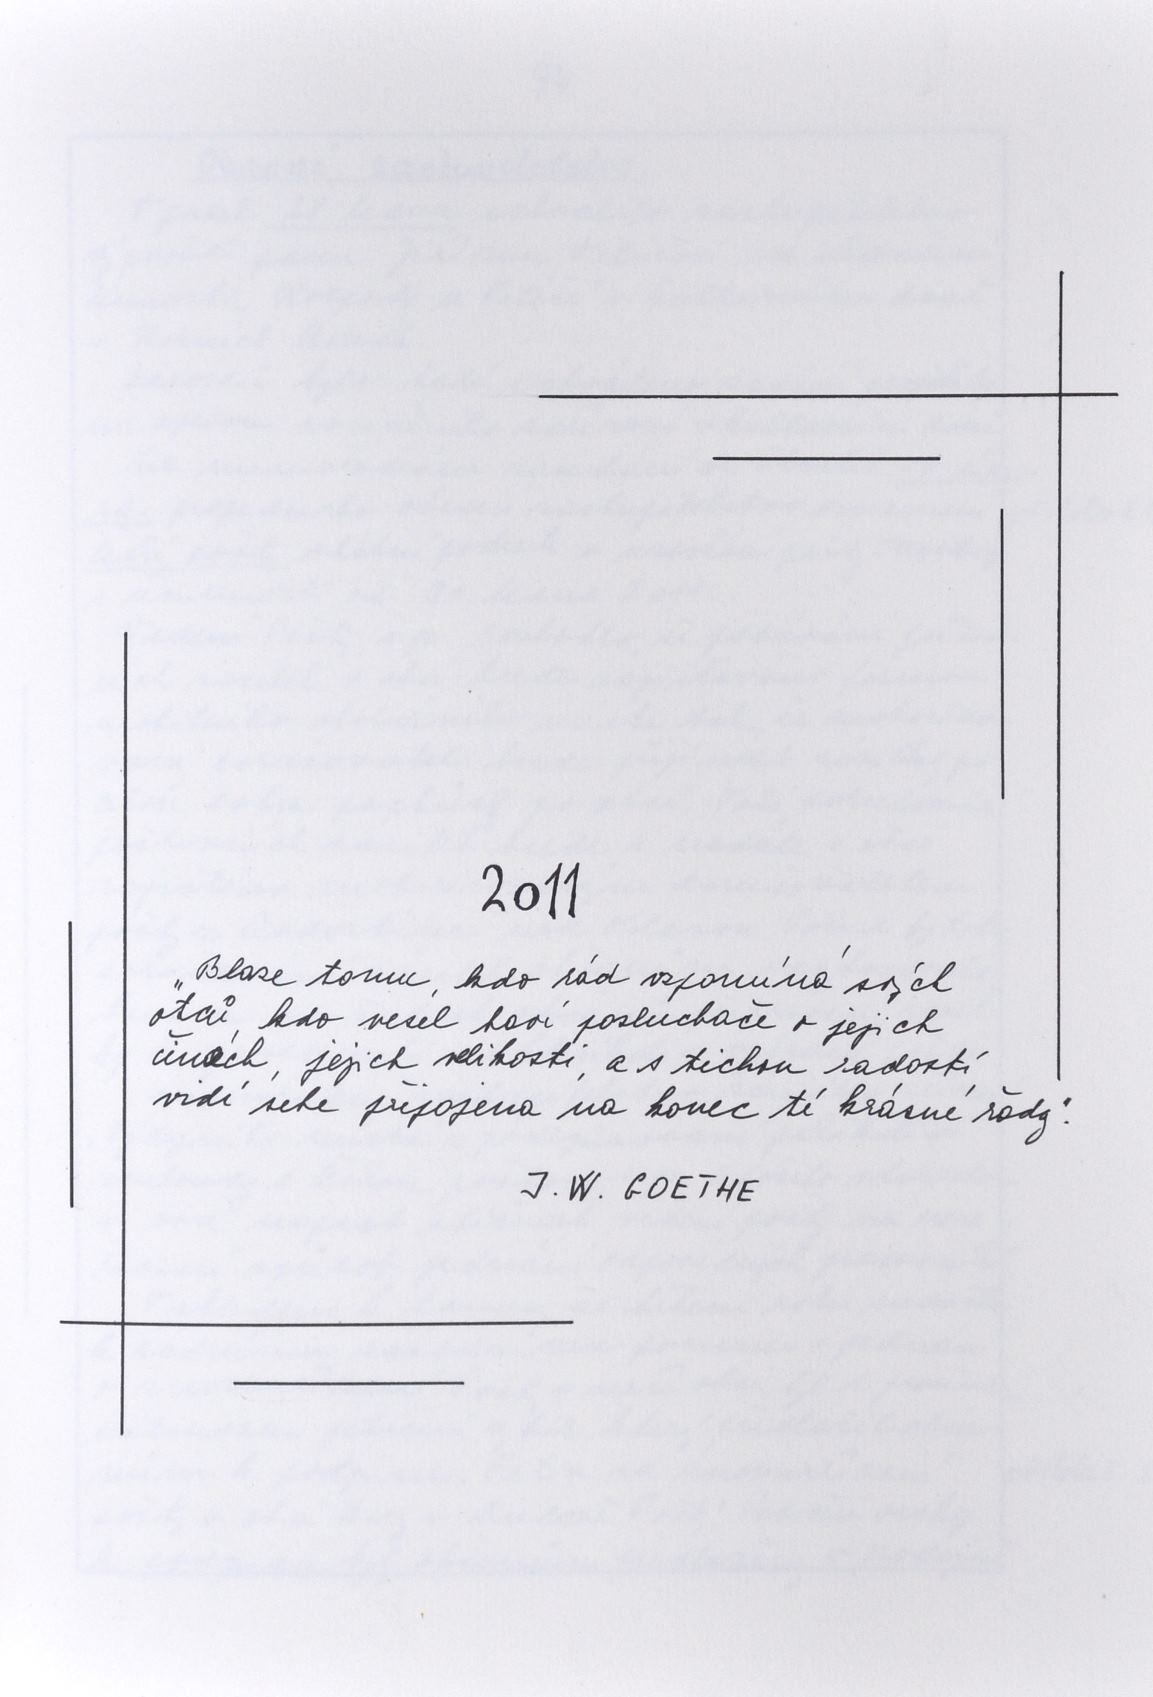 2011
„Blaze tomu, kdo rád vzpomíná svých
otců, kdo vesel baví posluchače o jejich
činech, jejich velikosti, a s tichou radostí
vidí sebe připojena na konec té krásné řady".
J. W. GOETHE